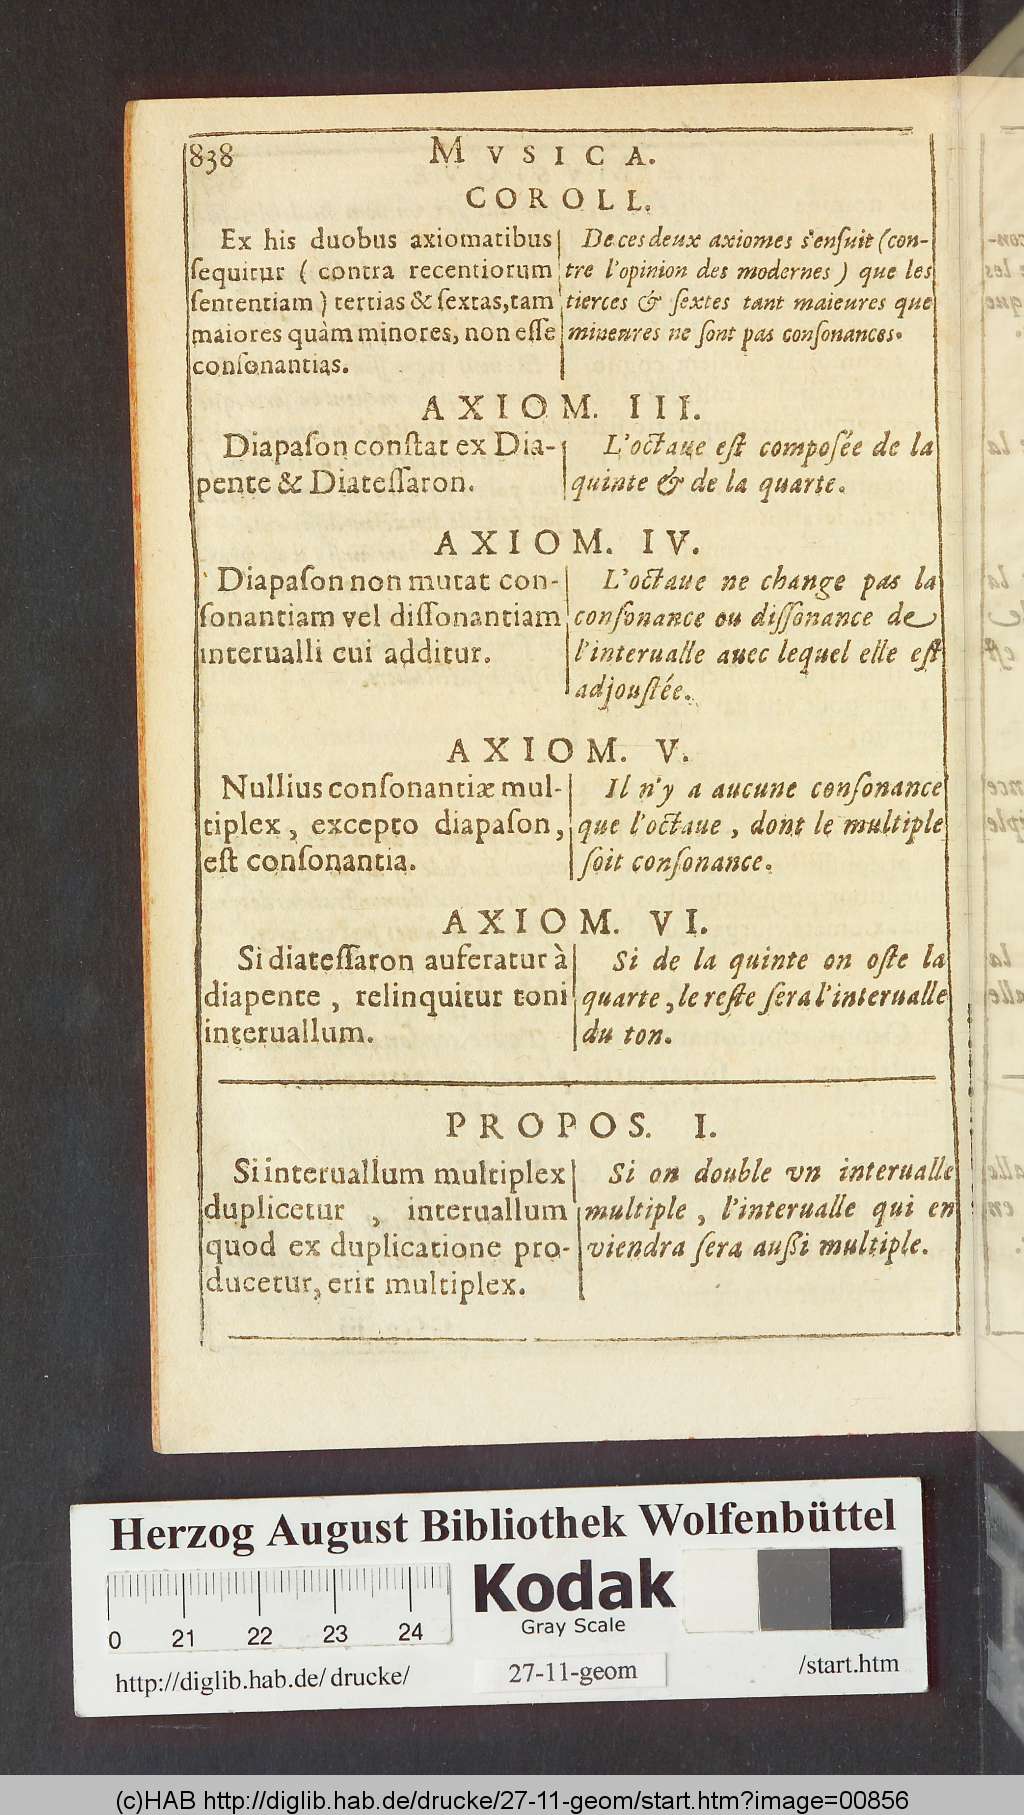 838 MVSICA.
COROLL.
Ex his duobus axiomatibus
ſequitur ( contra recentiorum
ſententiam ) tertias & ſextas, tam
maiores quàm minores, non eſſe
conſonantias.
De ces deux axiomes s'enſuit (con-
tre l'opinion des modernes ) que les
tierces & ſextes tant maieures que
mineures ne ſont pas conſonances.
AXIOM. III.
Diapaſon conſtat ex Dia-
pente & Diateſſaron.
L'octaue eſt compoſée de la
quinte & de la quarte.
AXIOM. IV.
Diapaſon non mutat con-
ſonantiam vel diſſonantiam
interualli cui additur.
L'octaue ne change pas la
conſonance ou diſſonance de
l'interualle auec lequel elle eſt
adjouſtée.
AXIOM. V.
Nullius conſonantiæ mul-
tiplex, excepto diapaſon,
eſt conſonantia.
Il n'y a aucune conſonance
que l'octaue, dont le multiple
ſoit conſonance.
AXIOM. VI.
Si diateſſaron auferatur à
diapente, relinquitur toni
interuallum.
Si de la quinte on oſte la
quarte, le reſte ſera l'interualle
du ton.
PROPOS. I.
Si interuallum multiplex
duplicetur, interuallum
quod ex duplicatione pro-
ducetur, erit multiplex.
Si on double vn interualle
multiple, l'interualle qui en
viendra ſera außi multiple.
Herzog August Bibliothek Wolfenbüttel
Kodak
Gray Scale
0 21 22 23 24
http://diglib.hab.de/ drucke/
27-11-geom
/start.htm
(c)HAB http://diglib.hab.de/drucke/27-11-geom/start.htm?image=00856